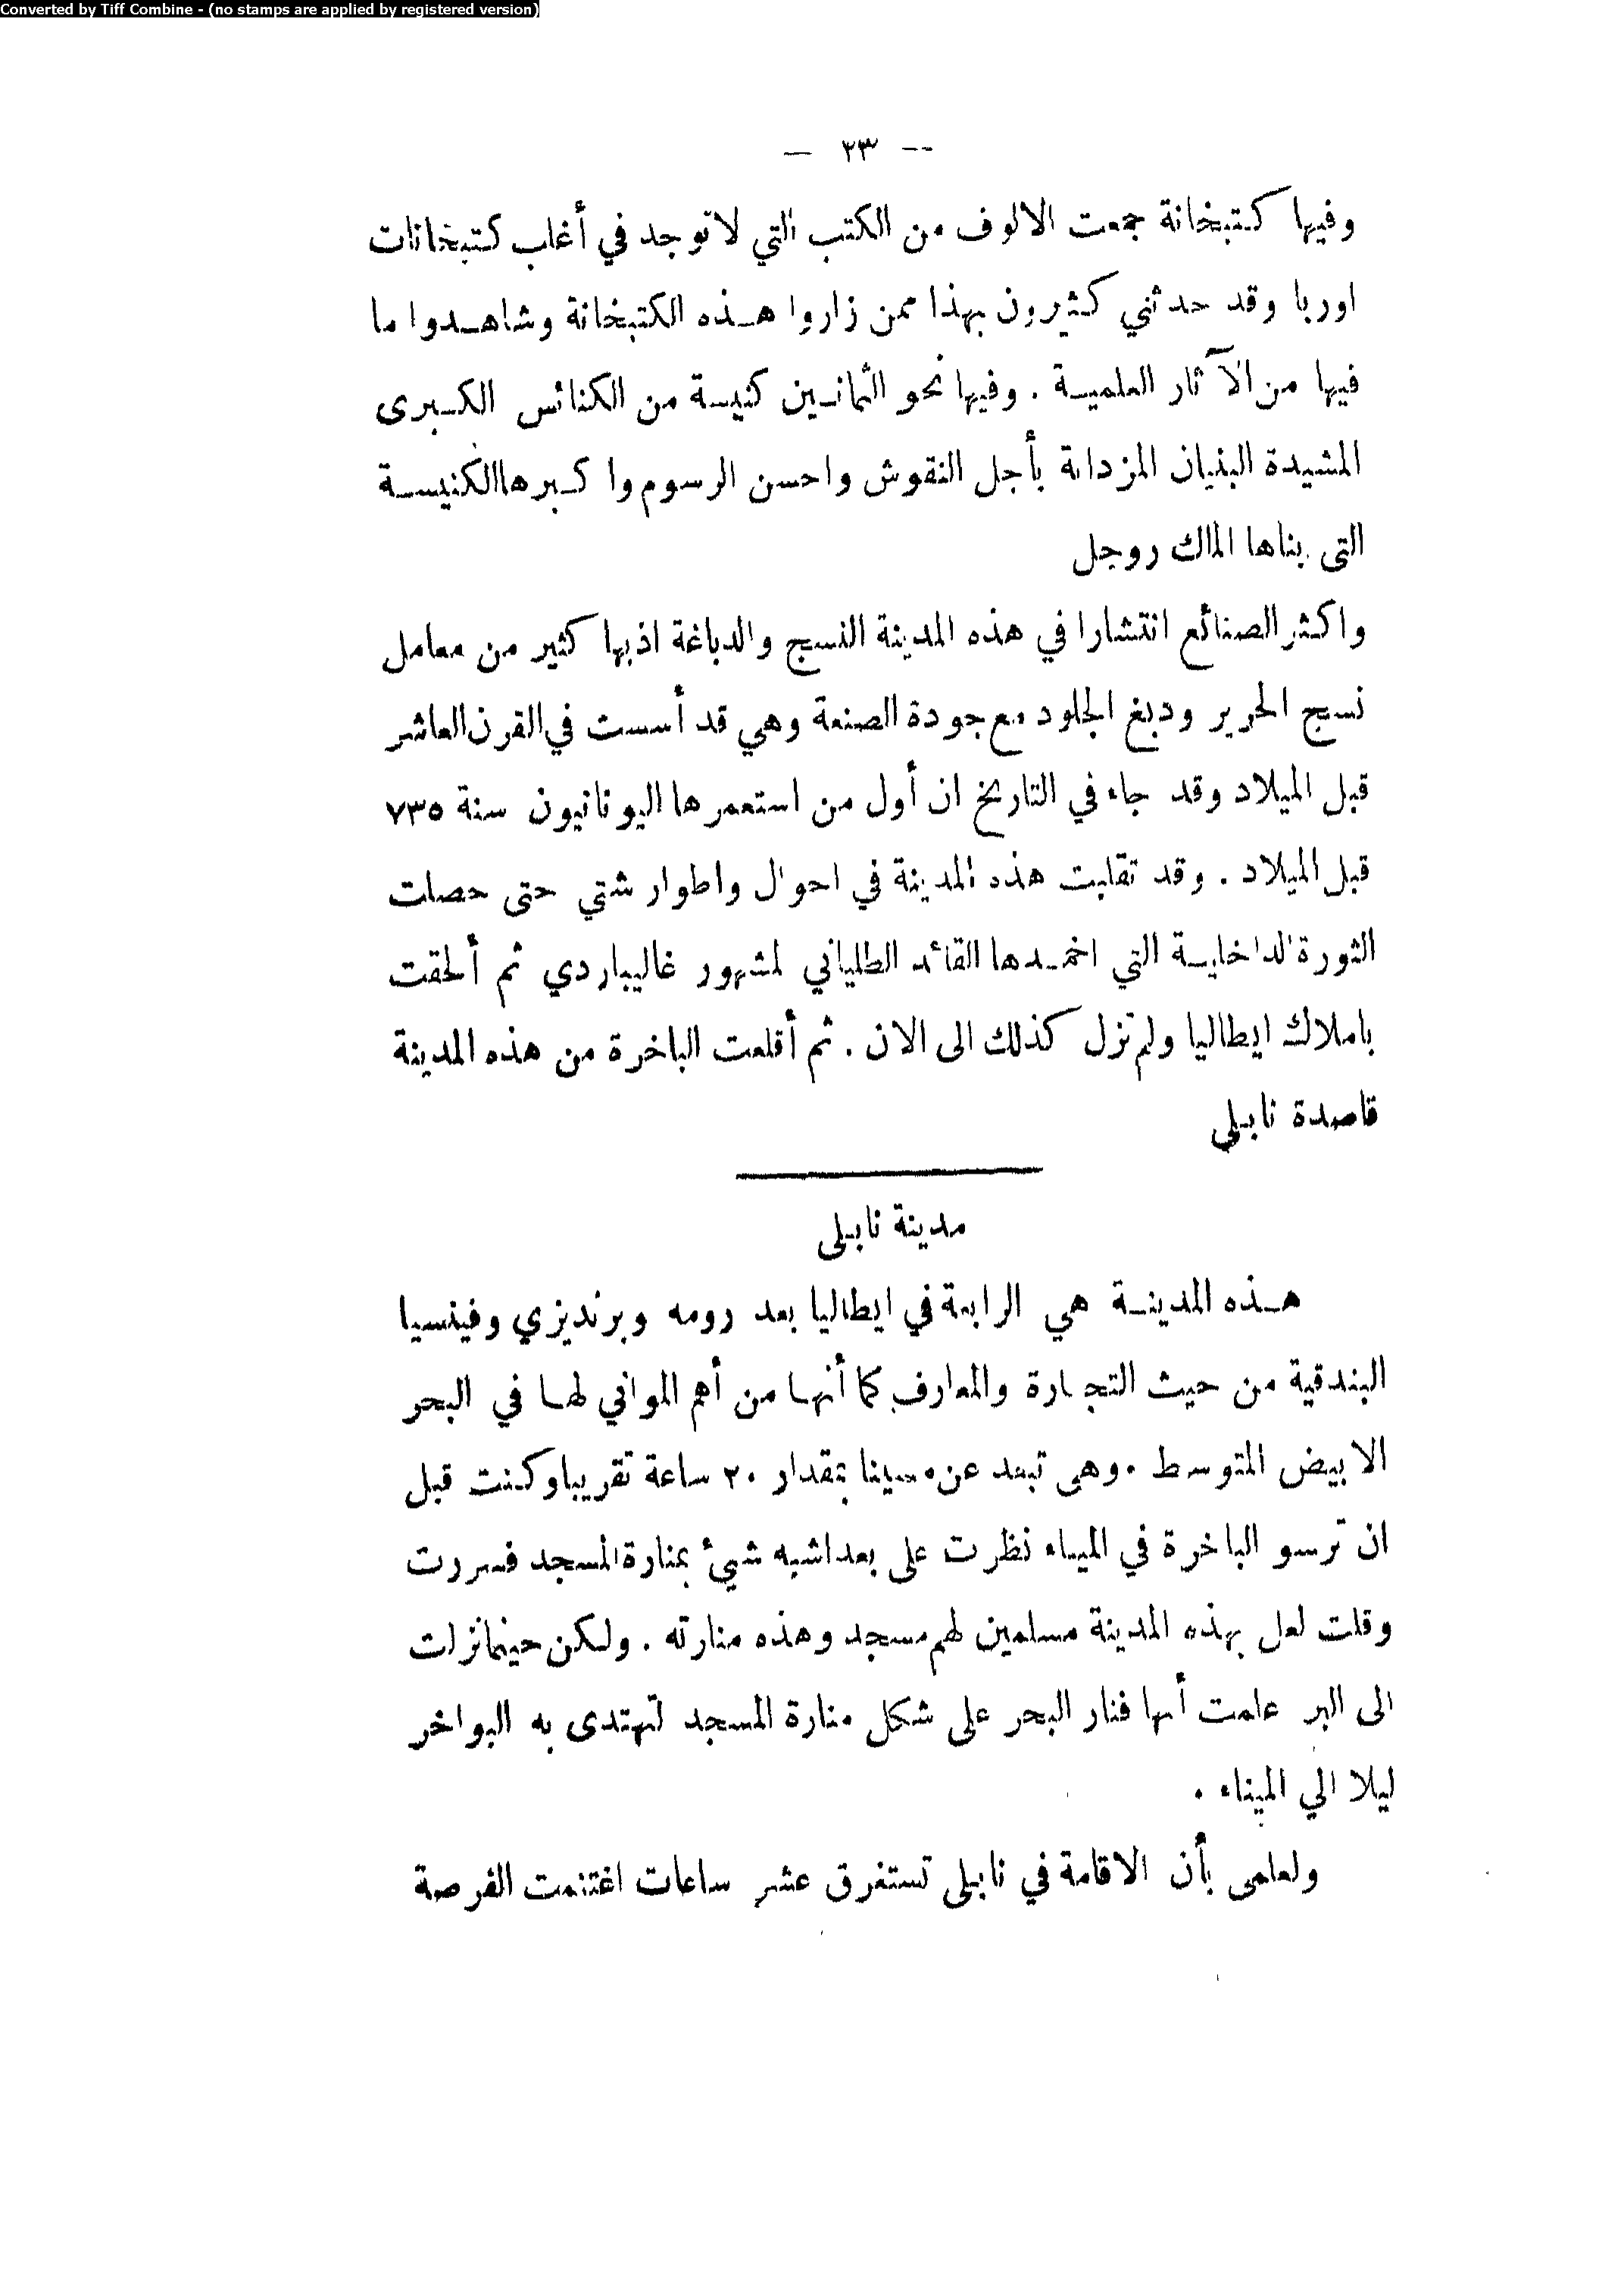 Converted by Tiff Combine - (no stamps are applied by registered version)
-- ٢٣ —
وفيها كتبخانة جمعت الالوف من الكتب التي لاتوجد في أغلب كتبخانات
اوربا وقد حدثني كثيرون بهذا ممن زاروا هذه الكتبخانة وشاهدوا ما
فيها من الآثار العلمية . وفيها نحو الثمانين كنيسة من الكنائس الكبرى
المشيدة البنيان المزدانة بأجل النقوش واحسن الرسوم واكبرها الكنيسة
التى بناها الملك روجل
واكثر الصنائع انتشارا في هذه المدينة النسج والدباغة اذ بها كثير من معامل
نسج الحرير ودبغ الجلود مع جودة الصنعة وهي قد أسست في القرن العاشر
قبل الميلاد وقد جاء في التاريخ ان أول من استعمرها اليونانيون سنة ٧٣٥
قبل الميلاد . وقد تقلبت هذه المدينة في احوال واطوار شتي حتى حصلت
الثورة الداخلية التي اخمدها القائد الطلياني لمشهور غاليباردي ثم ألحقت
باملاك ايطاليا ولم تزل كذلك الى الان . ثم أقلعت الباخرة من هذه المدينة
قاصدة نابلى
مدينة نابلى
هذه المدينة هي الرابعة في ايطاليا بعد رومه وبرنديزي وفينسيا
البندقية من حيث التجارة والمعارف كما أنها من أهم المواني لها في البحر
الابيض المتوسط . وهى تبعد عن مسينا بمقدار ٢٠ ساعة تقريبا وكنت قبل
ان ترسو الباخرة في المياه نظرت على بعد اشبه شيئ بمنارة المسجد فسررت
وقلت لعل بهذه المدينة مسلمين لهم مسجد وهذه منارته . ولكن حينما نزلت
الى البر علمت أنها فنار البحر على شكل منارة المسجد لتهتدى به البواخر
ليلا الي الميناء .
ولعلمى بأن الاقامة في نابلى تستغرق عشر ساعات اغتنمت الفرصة